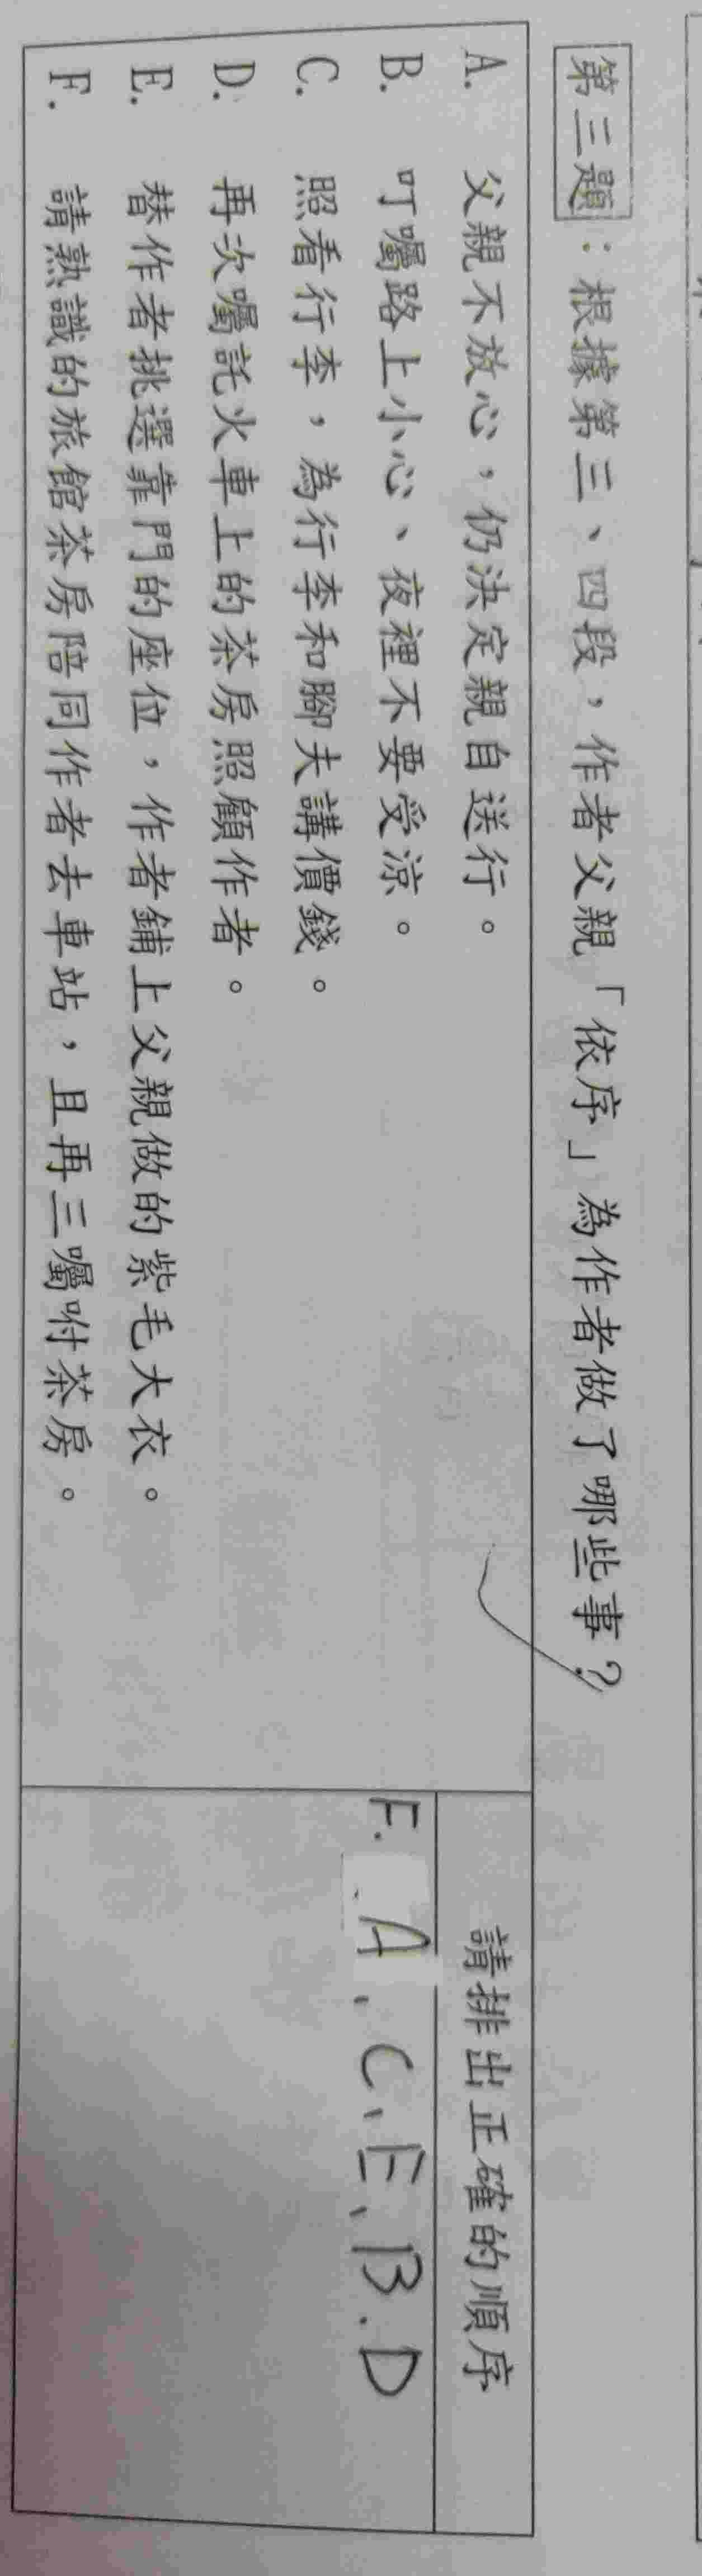 第三題：根據第三、四段，作者父親「依序」為作者做了哪些事？
A. 父親不放心，仍決定親自送行。
B. 叮囑路上小心、夜裡不要受涼。
C. 照看行李，為行李和腳夫講價錢。
D. 再次囑託火車上的茶房照顧作者。
E. 替作者挑選靠門的座位，作者鋪上父親做的紫毛大衣。
F. 請熟識的旅館茶房陪同作者去車站，且再三囑咐茶房。
請排出正確的順序
F. A、C、E、B.D